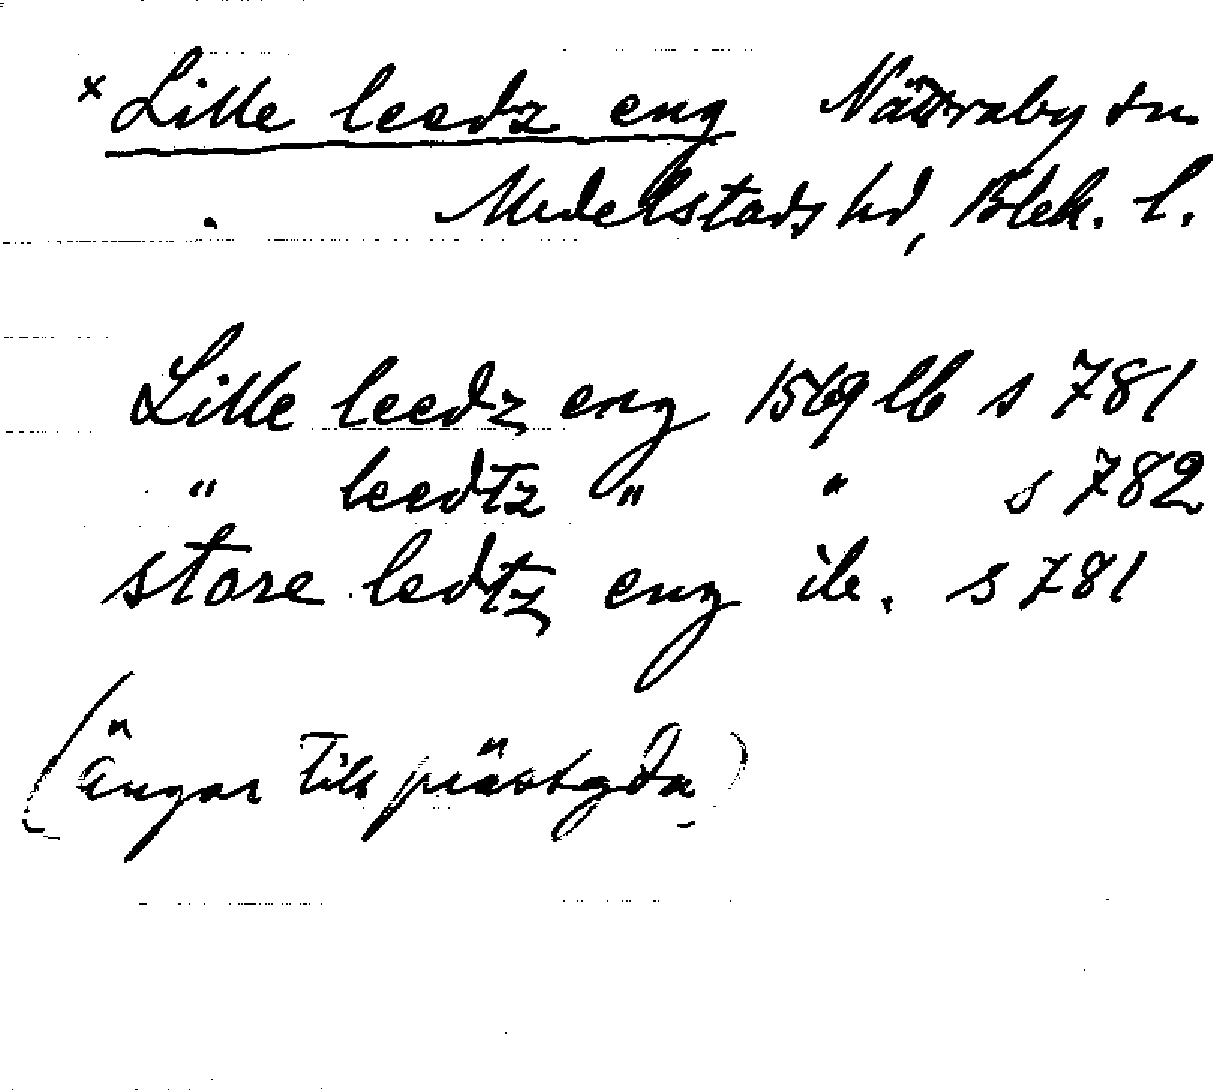 x Lille leedz eng Nättraby sn
Medelstads hd, Blek. l.
Lille leedz eng 1569 lb s 781
" leedtz " " s 782
store ledtz eng ib. s 781
(Ängar till prästgdn)